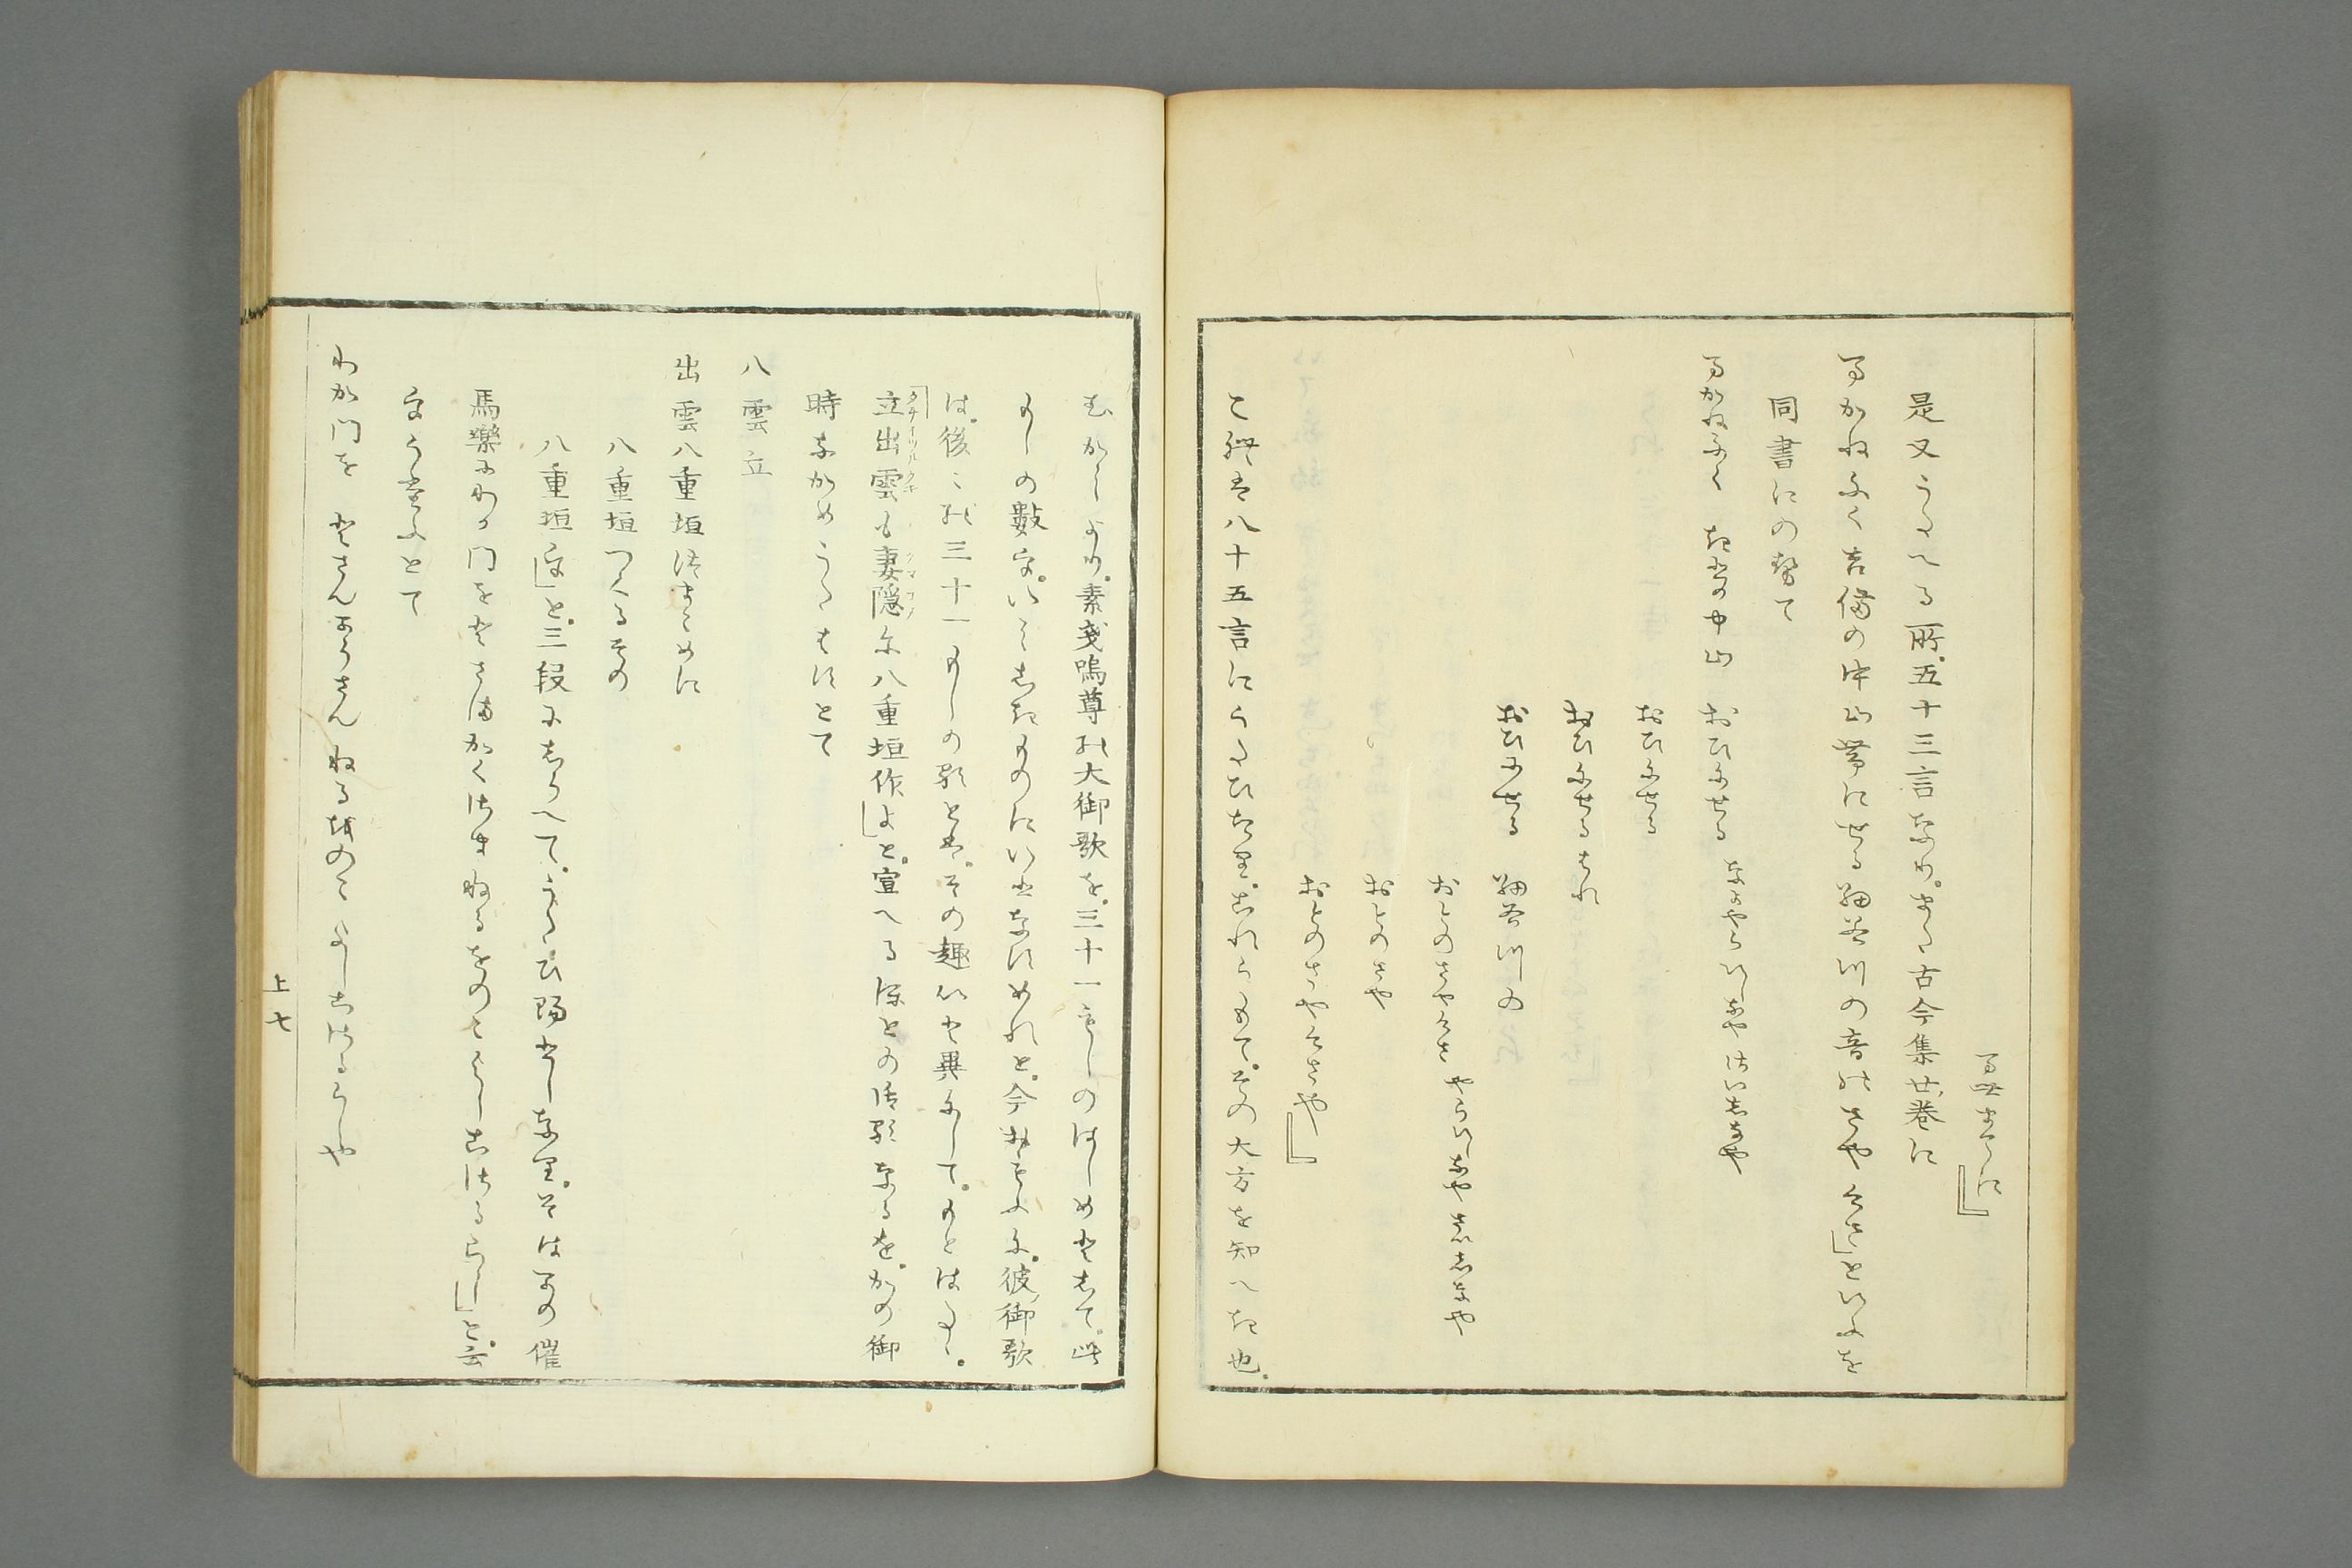 万世までに』
是又うたへる所。五十三言なり。また古今集廿巻に
まかねふく吉備の中山帯にせる細谷川の音のさやけさ」といふを
同書にのせて
まかねふく きひの中山 おひにせる なよやらいしなや さいしなや
おひにせる
おひにせる はれ
おひにせる 細谷川の
おとのさやけさ やらいしなや さいしなや
おとのさや
おとのさやけさや』
と歌は八十五言にうたひたり。これらもて。その大方を知へき也。
むかしより。素戔嗚尊の大御歌を。三十一もしのはしめとして。此
もしの数定。いとしきものにいふなすめれと。今おもふに。彼御歌
は。後々の三十一もしの歌とは。その趣いと異にして。もとはたゝ。
「立出雲も妻隠に八重垣作よ」と。宣へるほとの御歌なるを。かの御
時なかめうたはすとて
八雲立
出雲八重垣つまこめに
八重垣つくるその
八重垣ゑ」と。三段にしらへて。うたひ賜としなり。そは今の催
馬樂にわか門をとさまかくさまねるをのこよしこさるらし」と。云
ゑうたふとて
わか門を とさんかうさん ねるをのこ よしこさるらしや
上七